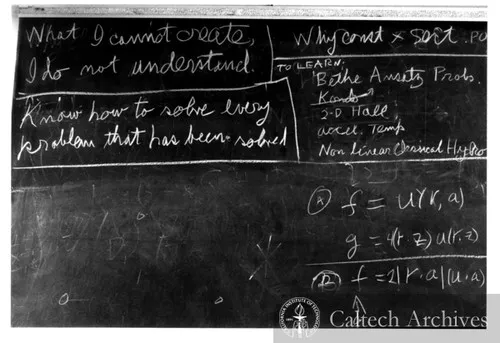 What I cannot create,
I do not understand.
Know how to solve every
problem that has been solved
Why const × sort . PO
TO LEARN:
Bethe Ansatz Probs.
Kondo
2-D Hall
accel. Temp
Non linear Classical Hydro
(A) f = u(r, a)
g = 4(r·z) u(r·z)
(B) f = 2|r·a|(u·a)
CALIFORNIA INSTITUTE OF TECHNOLOGY
Caltech Archives